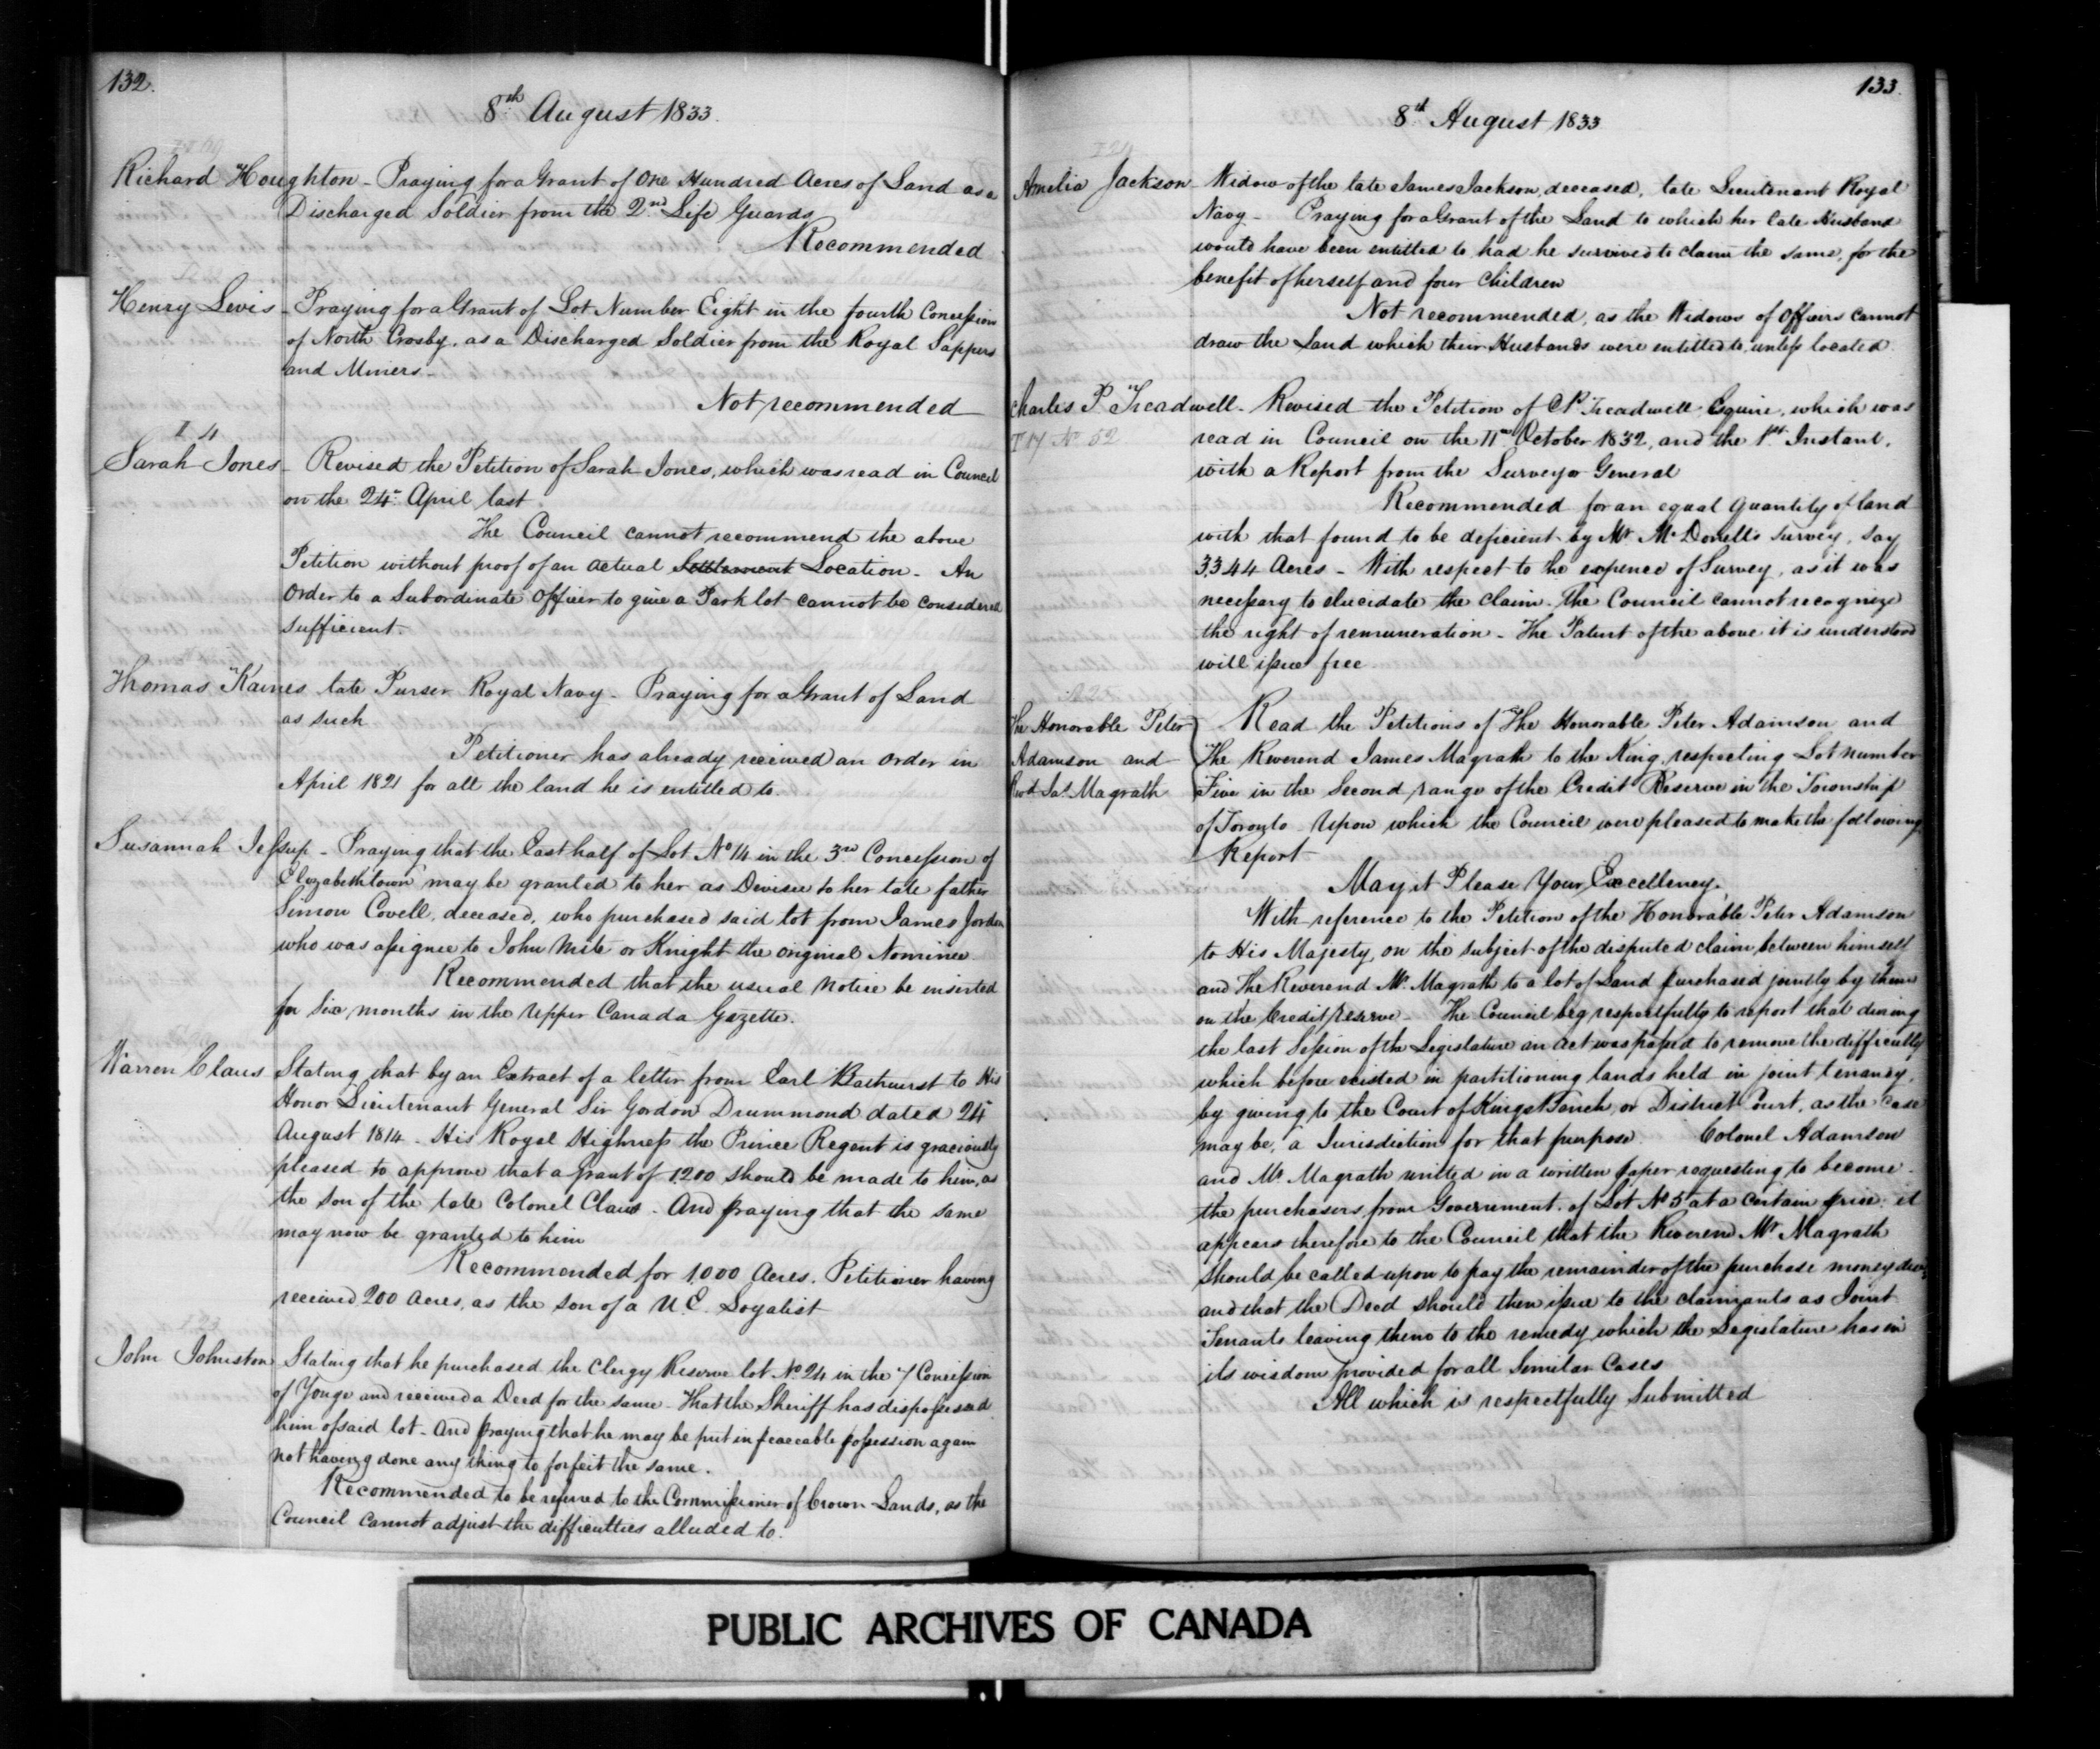 132.
8th August 1833.
Richard Houghton - Praying for a Grant of One Hundred Acres of Land as a
Discharged Soldier from the 2nd Life Guards
Recommended
Henry Lewis - Praying for a Grant of Lot Number Eight in the fourth Concession
of North Crosby, as a Discharged Soldier from the Royal Sappers
and Miners -
Not recommended
I 4
Sarah Jones - Revised the Petition of Sarah Jones, which was read in Council
on the 24th April last
The Council cannot recommend the above
Petition without proof of an actual Settlement Location - An
Order to a Subordinate Officer to give a Park lot cannot be considered
sufficient.
Thomas Kaines late Purser Royal Navy - Praying for a Grant of Land
as such
Petitioner has already received an order in
April 1821 for all the land he is entitled to.
Susannah Jessup - Praying that the East half of Lot No 14 in the 3rd Concession of
Elizabethtown may be granted to her as Devisee to her late father
Simon Covell, deceased, who purchased said lot from James Jordan
who was assignee to John Mite or Knight the original Nominee
Recommended that the usual Notice be inserted
for Six months in the Upper Canada Gazette.
Warren Claus Stating that by an Extract of a letter from Earl Bathurst to His
Honor Lieutenant General Sir Gordon Drummond dated 24th
August 1814 - His Royal Highness the Prince Regent is graciously
pleased to approve that a Grant of 1200 should be made to him, as
the son of the late Colonel Claus - And praying that the same
may now be granted to him
Recommended for 1,000 Acres. Petitioner having
received 200 Acres, as the son of a U.E. Loyalist
John Johnston Stating that he purchased the Clergy Reserve lot No 24 in the 7 Concession
of Yonge and received a Deed for the same - That the Sheriff has dispossessed
him of said lot - And praying that he may be put in peaceable possession again
not having done any thing to forfeit the same.
Recommended to be referred to the Commissioner of Crown Lands, as the
Council cannot adjust the difficulties alluded to.
133.
8th August 1833
Amelia Jackson - Widow of the late James Jackson, deceased, late Lieutenant Royal
Navy - Praying for a Grant of the Land to which her late Husband
would have been entitled to had he survived to claim the same, for the
benefit of herself and four Children
Not recommended, as the Widows of Officers cannot
draw the Land which their Husbands were entitled to, unless located.
Charles P. Treadwell - Revised the Petition of C P. Treadwell Esquire, which was
T 17 No 52
read in Council on the 11th October 1832, and the 1st Instant,
with a Report from the Surveyor General
Recommended for an equal quantity of land
with that found to be deficient by Mr McDonell's survey, say
3,344 Acres - With respect to the expence of Survey, as it was
necessary to elucidate the claim. The Council cannot recognize
the right of remuneration - The Patent of the above it is understood
will issue free
The Honorable Peter
Adamson and
Revd Jas Magrath
Read the Petitions of The Honorable Peter Adamson and
The Reverend James Magrath to the King, respecting Lot number
Five in the Second range of the Credit Reserve in the Township
of Toronto - Upon which the Council were pleased to make the following
Report
May it Please Your Excellency.
With reference to the Petition of the Honorable Peter Adamson
to His Majesty, on the subject of the disputed claim between himself
and The Reverend Mr. Magrath to a lot of Land purchased jointly by them
on the Credit Reserve - The Council beg respectfully to report that during
the last Session of the Legislature an act was passed to remove the difficulty
which before existed in partitioning lands held in joint tenancy,
by giving to the Court of Kings Bench, or District Court, as the case
may be, a Jurisdiction for that purpose. Colonel Adamson
and Mr Magrath united in a written paper requesting to become
the purchasers from Government of Lot No 5 at a certain price: it
appears therefore to the Council that the Reverend Mr Magrath
should be called upon to pay the remainder of the purchase money due
and that the Deed should then issue to the claimants as Joint
Tenants leaving them to the remedy which the Legislature has in
its wisdom provided for all Similar Cases
All which is respectfully Submitted
PUBLIC ARCHIVES OF CANADA